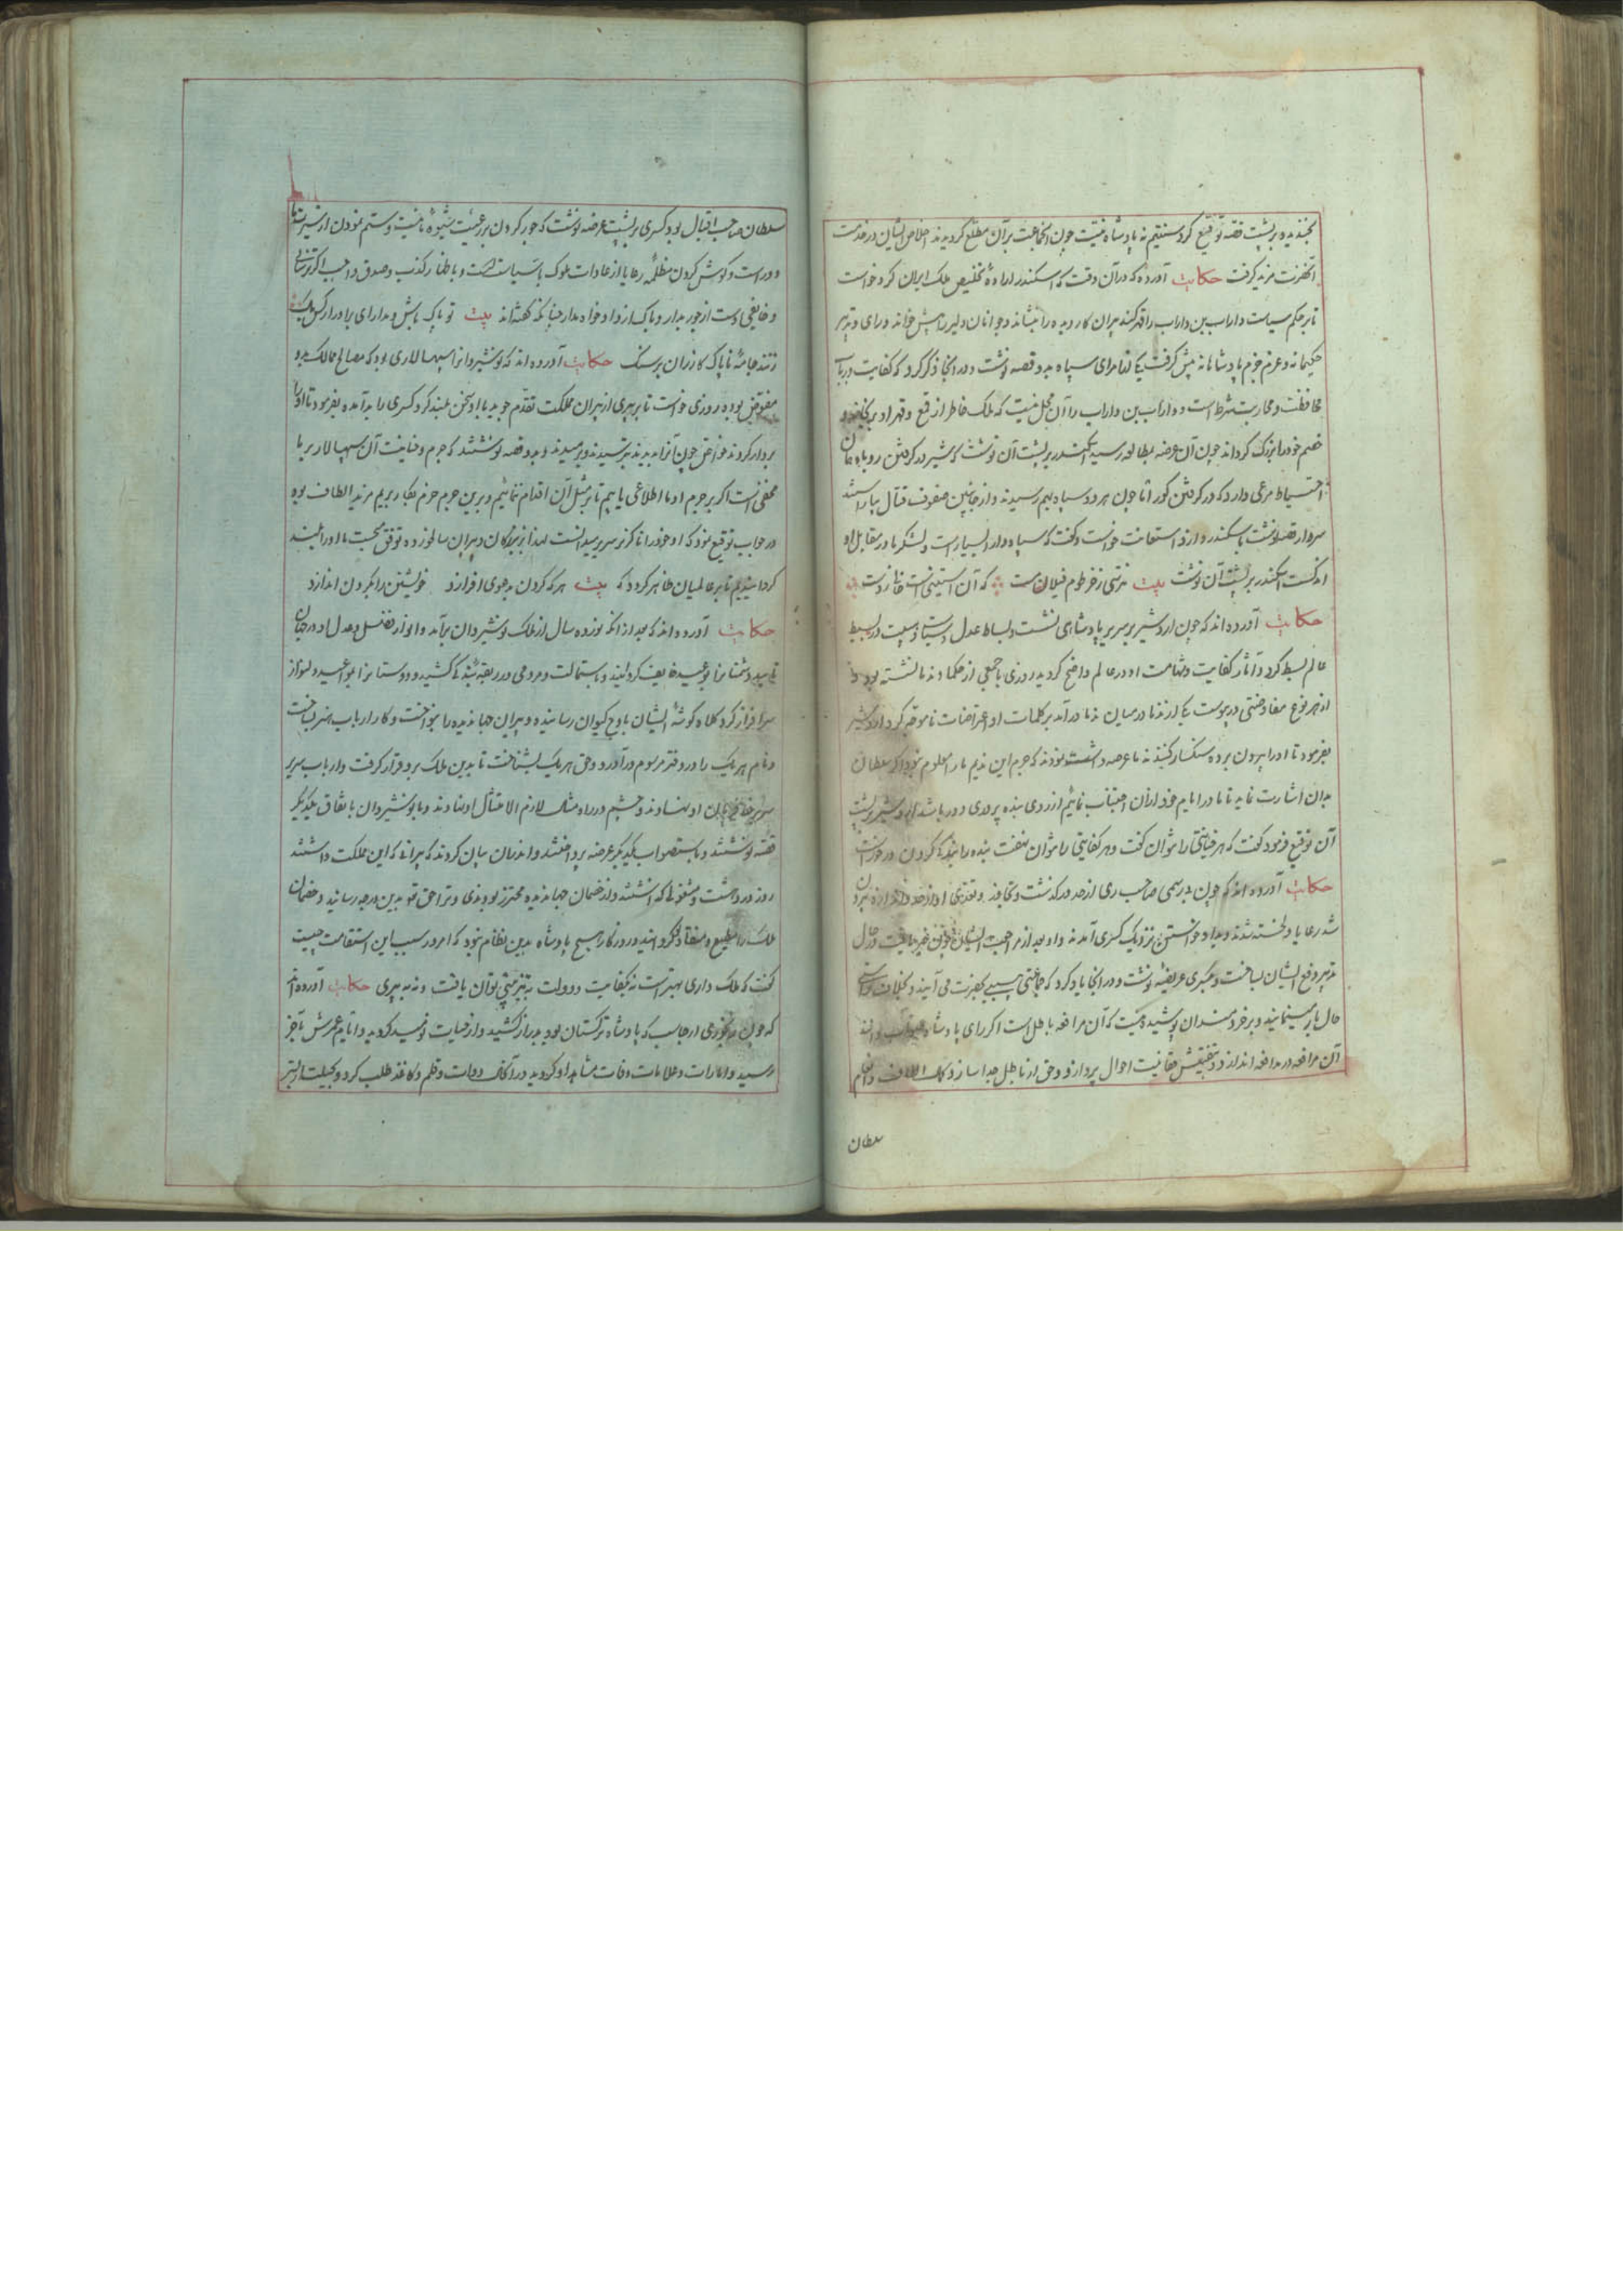 بخندید و بر پشت قصه توقیع کرد ستیم نه پادشاه نیست چون آنجماعت بر آن مطلع گردیدند اخلاص ایشان در خدمت
آنحضرت مزید گرفت حکایت آورده که در آن وقت که اسکندر اراده تخلیص ملک ایران کرد خواست
تا بر حکم سیاست داراب بن داراب را قهر کند پیران کار دیده را بنشاند و جوانان دلیر را پیش خواند و رای و تدبیر
حکیمانه و عزم جزم پادشاهانه پیش گرفت یکی از امرای سپاه بدو قصه نوشت و در آنجا ذکر کرد که کفایت در باب
محافظت و محاربت شرط است و داراب بن داراب را آن محل نیست که ملک خاطر از قمع و قهر او
خصم خود را بزرگ گرداند چون آن عرضه بمطالعه رسید اسکندر بر پشت آن نوشت که شیر در گرفتن روباه همان
احتیاط مرعی دارد که در گرفتن گور اما چون هر دو سپاه بهم رسیدند و از جانبین صفوف قتال بیاراستند
سردار قصه نوشت باسکندر و ازو استعانت خواست و گفت که سپاه دارا بسیار است و لشکر ما در مقابل او
اندکست اسکندر بر پشت آن نوشت بیت نترسی ز خرطوم پیلان مست که آن آستینی است خالی ز دست
حکایت آورده‌اند که چون اردشیر بر سریر پادشاهی نشست و بساط عدل و سیاست در بسیط
عالم بسط کرد و آثار کفایت و شهامت او در عالم واضح گردید روزی با جمعی از حکما و ندما نشسته بود و
از هر نوع مفاوضتی در پیوست یکی از ندما در میان ندما درآمد بر کلمات او اعتراضات ناموجه کرد اردشیر
بفرمود تا او را بیرون برده سنگسار کنند ندما عرضه داشت نمودند که جرم این ندیم ما را معلوم نبود اگر سلطان
بدان اشارت نماید تا ما در ایام خود از آن اجتناب نمائیم از روی بنده پروری دور نباشد اردشیر بر پشت
آن توقیع فرمود گفت که هر خیانتی را توان گفت و هر کفایتی را نتوان نهفت بنده را بندگی کردن در خور است
حکایت آورده‌اند که چون بد رسمی صاحب ری از حد درگذشت و تجاوز و تعدی او از حد و اندازه بیرون
شد رعایا دلخسته شدند و بداد خواستن نزدیک کسری آمدند و او بعد از مراجعت ایشان چون خبر یافت در حال
تدبیر دفع ایشان ساخت و بکسری عریضه نوشت و در آنجا یاد کرد که جماعتی بسبب بحضرت می آیند و بخلاف راستی
حال باز مینمایند و بر خردمندان پوشیده نیست که آن مرافعه باطل است اگر رای پادشاه صواب داند
آن مرافعه در مدافعه اندازد و تفتیش حقانیت احوال پردازد و حق از باطل جدا سازد کمال الطاف و انعام
سلطان
سلطان صاحب اقبال بود کسری بر پشت عرضه نوشت که جور کردن بر رعیت شیوه ما نیست و ستم نمودن از سیرت ما
دور است و گوش کردن مظلمه رعایا از عادات ملوک با سیاست است و باظهار کذب و صدق واجب اگر ترسانی
و خایفی دست از جور بدار و باک از دادخواه مدار چنانکه گفته‌اند بیت تو پاک باش و مدار ای برادر از کس باک
زنند جامه ناپاک گازران بر سنگ حکایت آورده‌اند که نوشیروانرا سپهسالاری بود که مصالح ممالک بدو
مفوض بوده روزی خواست تا بر پیری از پیران مملکت تقدم جوید با او سخن بلند کرد کسری را بد آمده بفرمود تا او را
بردار کردند خواص چون آنرا بدیدند بترسیدند و برمیدند و بدو قصه نوشتند که جرم و خیانت آن سپهسالار بر ما
مخفی است اگر بر جرم او ما اطلاعی یابیم تا بر مثل آن اقدام ننمائیم و بر این جرم حزم بکار بریم مزید الطاف بود
در جواب توقیع نمود که او خود را ناگزیر سریر میدانست لهذا از بزرگان و پیران سالخورده توفق میجست ما او را بلند
گردانیدیم تا بر عالمیان ظاهر گردد که بیت هر که گردن بدعوی افرازد خویشتن را بگردن اندازد
حکایت آورده‌اند که بعد از آنکه نوزده سال از ملک نوشیروان برآمد و انوار فضل و عدل او در جهان
تابید دشمنانرا بوعید خایف گردانید و باستمالت و مردمی در ربقه بندگی کشید و دوستانرا بمواعید دلنواز
سرافراز کرد کلاه گوشه ایشان باوج کیوان رسانیده و پیران جهاندیده را بنواخت و کار ارباب هنر بساخت
و نام هر یک را در دفتر مرسوم درآورد و حق هر یک بشناخت تا بدین ملک برو قرار گرفت و ارباب سریر
سر بر خط فرمان او نهادند و چشم در راه مثال لازم الامتثال او نهادند و با نوشیروان باتفاق یکدیگر
قصه نوشتند و باستصواب یکدیگر عرضه پرداختند و اندر آن بیان کردند که پیرانی که این مملکت داشتند
روز در دهشت و مشغولی گذاشتند و از خصمان جهاندیده محترز بودندی و ترا حق تو بدین درجه رسانید و خصمان
ملک را مطیع و منقاد تو گردانید و روزگار هیچ پادشاه بدین نظام نبود که امروز سبب این استقامت چیست
گفت که ملک داری بهتر است نه بکفایت و دولت به تیزهشی توان یافت و نه به پیری حکایت آورده‌اند
که چون رنجوری ارجاسب که پادشاه ترکستان بود بدراز کشید و از حیات نومید گردید و ایام عمرش بآخر
رسید و امارات و علامات وفات مشاهد او گردید در آنکه دوات و قلم و کاغذ طلب کرد و بحیلت از بستر